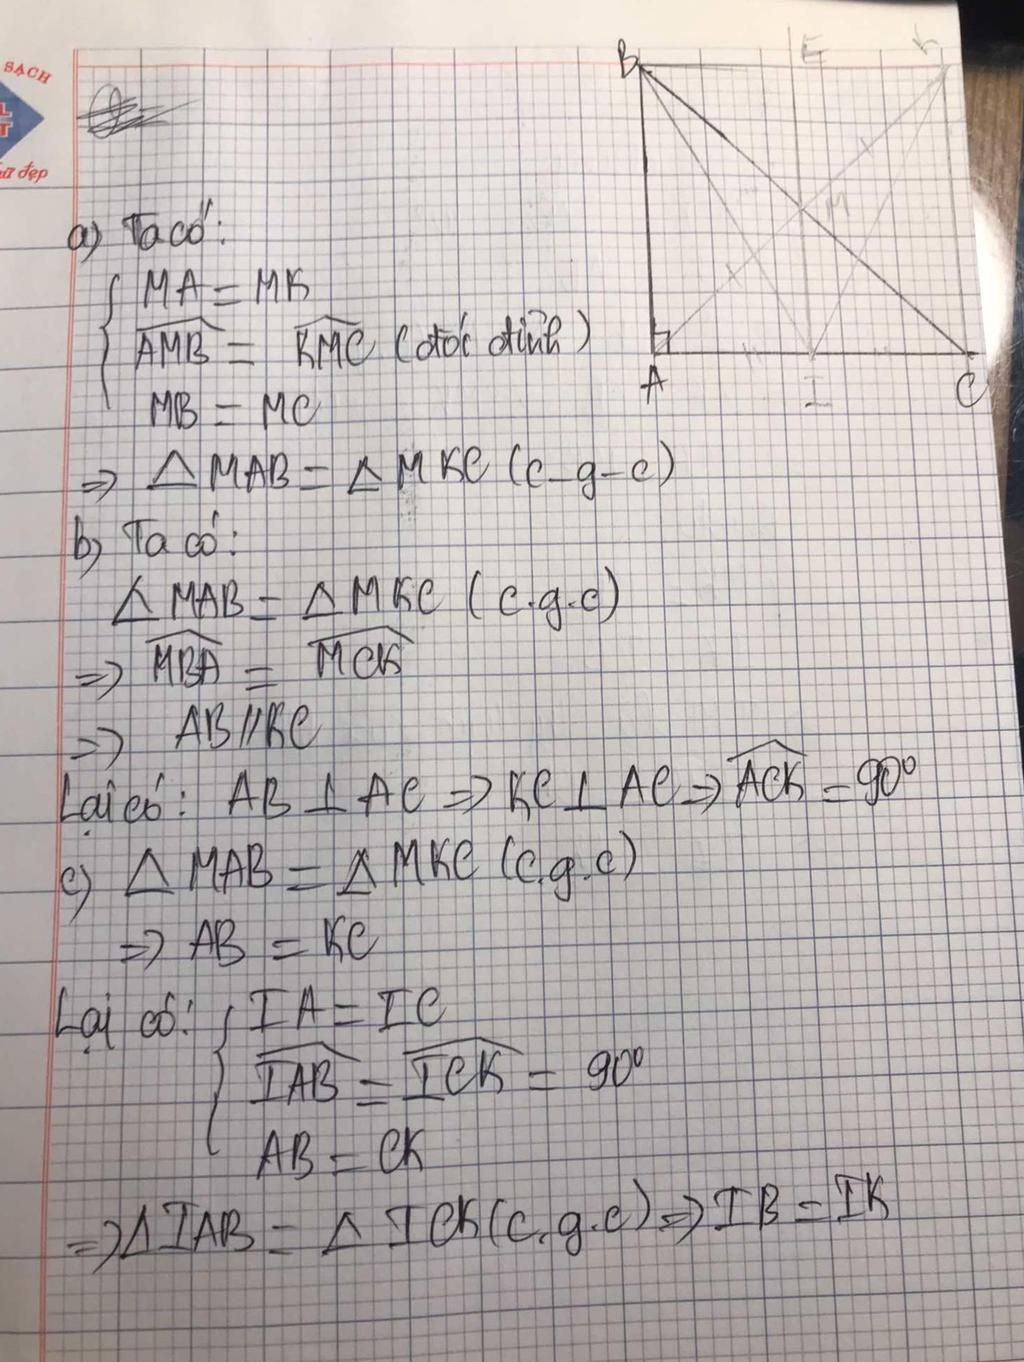 SÁCH
đẹp
B
E
K
M
A
I
C
a) Ta có:
MA = MK
AMB = KMC (đối đỉnh)
MB = MC
=> △ MAB = △ MKC (c-g-c)
b) Ta có:
△ MAB = △ MKC (c.g.c)
=> MBA = MCK
=> AB // KC
Lại có: AB ⊥ AC => KC ⊥ AC => ACK = 90°
c) △ MAB = △ MKC (c.g.c)
=> AB = KC
Lại có: IA = IC
IAB = ICK = 90°
AB = CK
=> △ IAB = △ ICK (c.g.c) => IB = IK